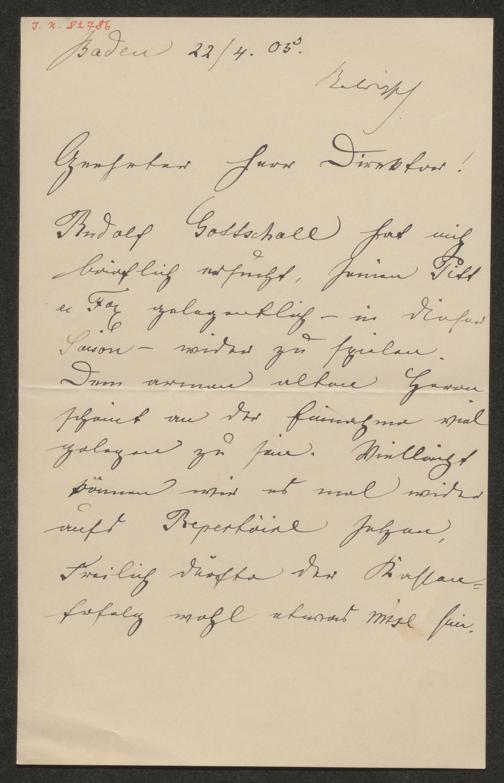 J. N. 82786
Baden 22/4. 05.
Geehrter Herr Direktor!
Rudolf Gottschall hat mich
brieflich ersucht, seinen Pitt
u Fox gelegentlich – in dieser
Saison – wider zu spielen.
Dem armen alten Herrn
scheint an der Einnahme viel
gelegen zu sein. Vielleicht
können wir es mal wider
aufs Repertoire setzen,
Freilich dürfte der Kassen-
erfolg wohl etwas mies sein.